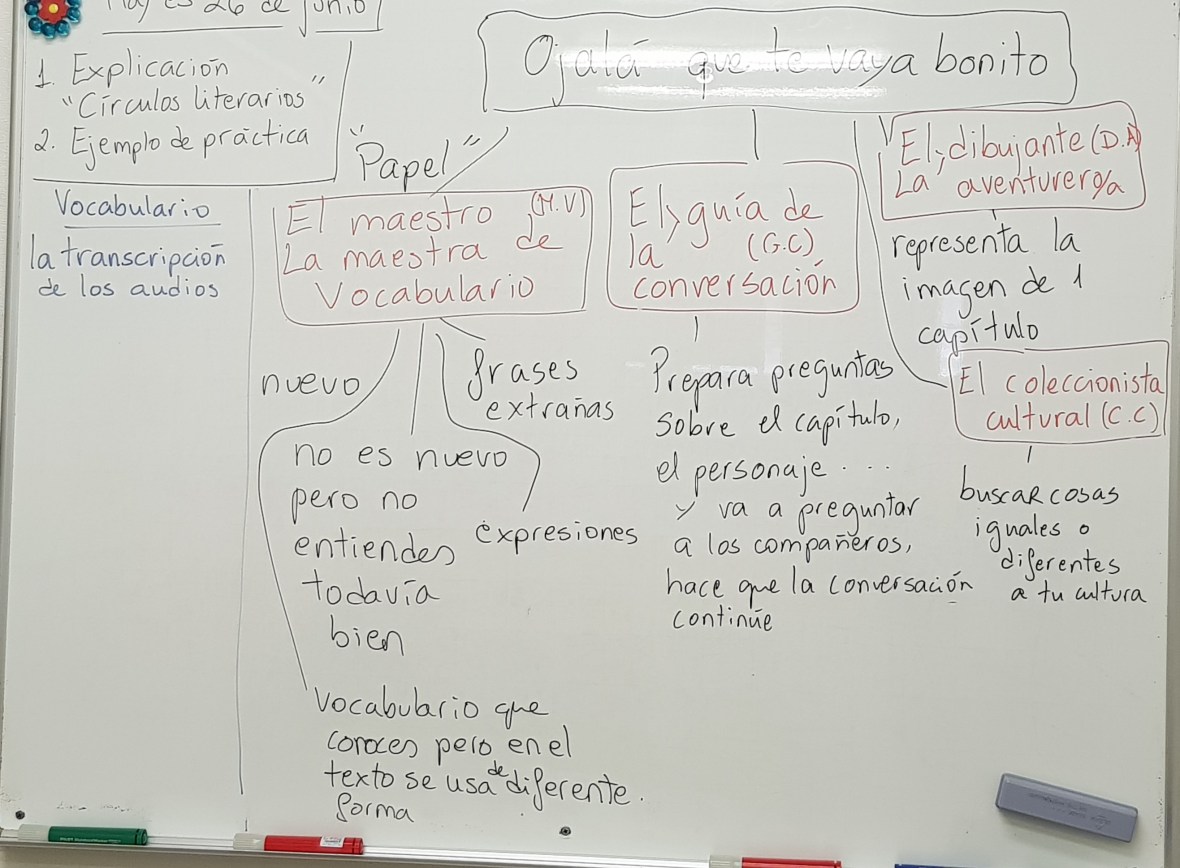 Hoy es 26 de junio
1. Explicación
"Círculos literarios"
2. Ejemplo de práctica
Vocabulario
la transcripción
de los audios
Ojalá que te vaya bonito
"Papel"
El maestro (M.V)
La maestra de
Vocabulario
nuevo
frases
extrañas
no es nuevo
pero no
entiendes
todavía
bien
expresiones
Vocabulario que
conoces pero en el
texto se usa de diferente.
forma
El, guía de
la (G.C)
conversación
Prepara preguntas
sobre el capítulo,
el personaje....
y va a preguntar
a los compañeros,
hace que la conversación
continúe
El, dibujante (D.A)
La aventurero/a
representa la
imagen de 1
capítulo
El coleccionista
cultural (C.C)
buscar cosas
iguales o
diferentes
a tu cultura